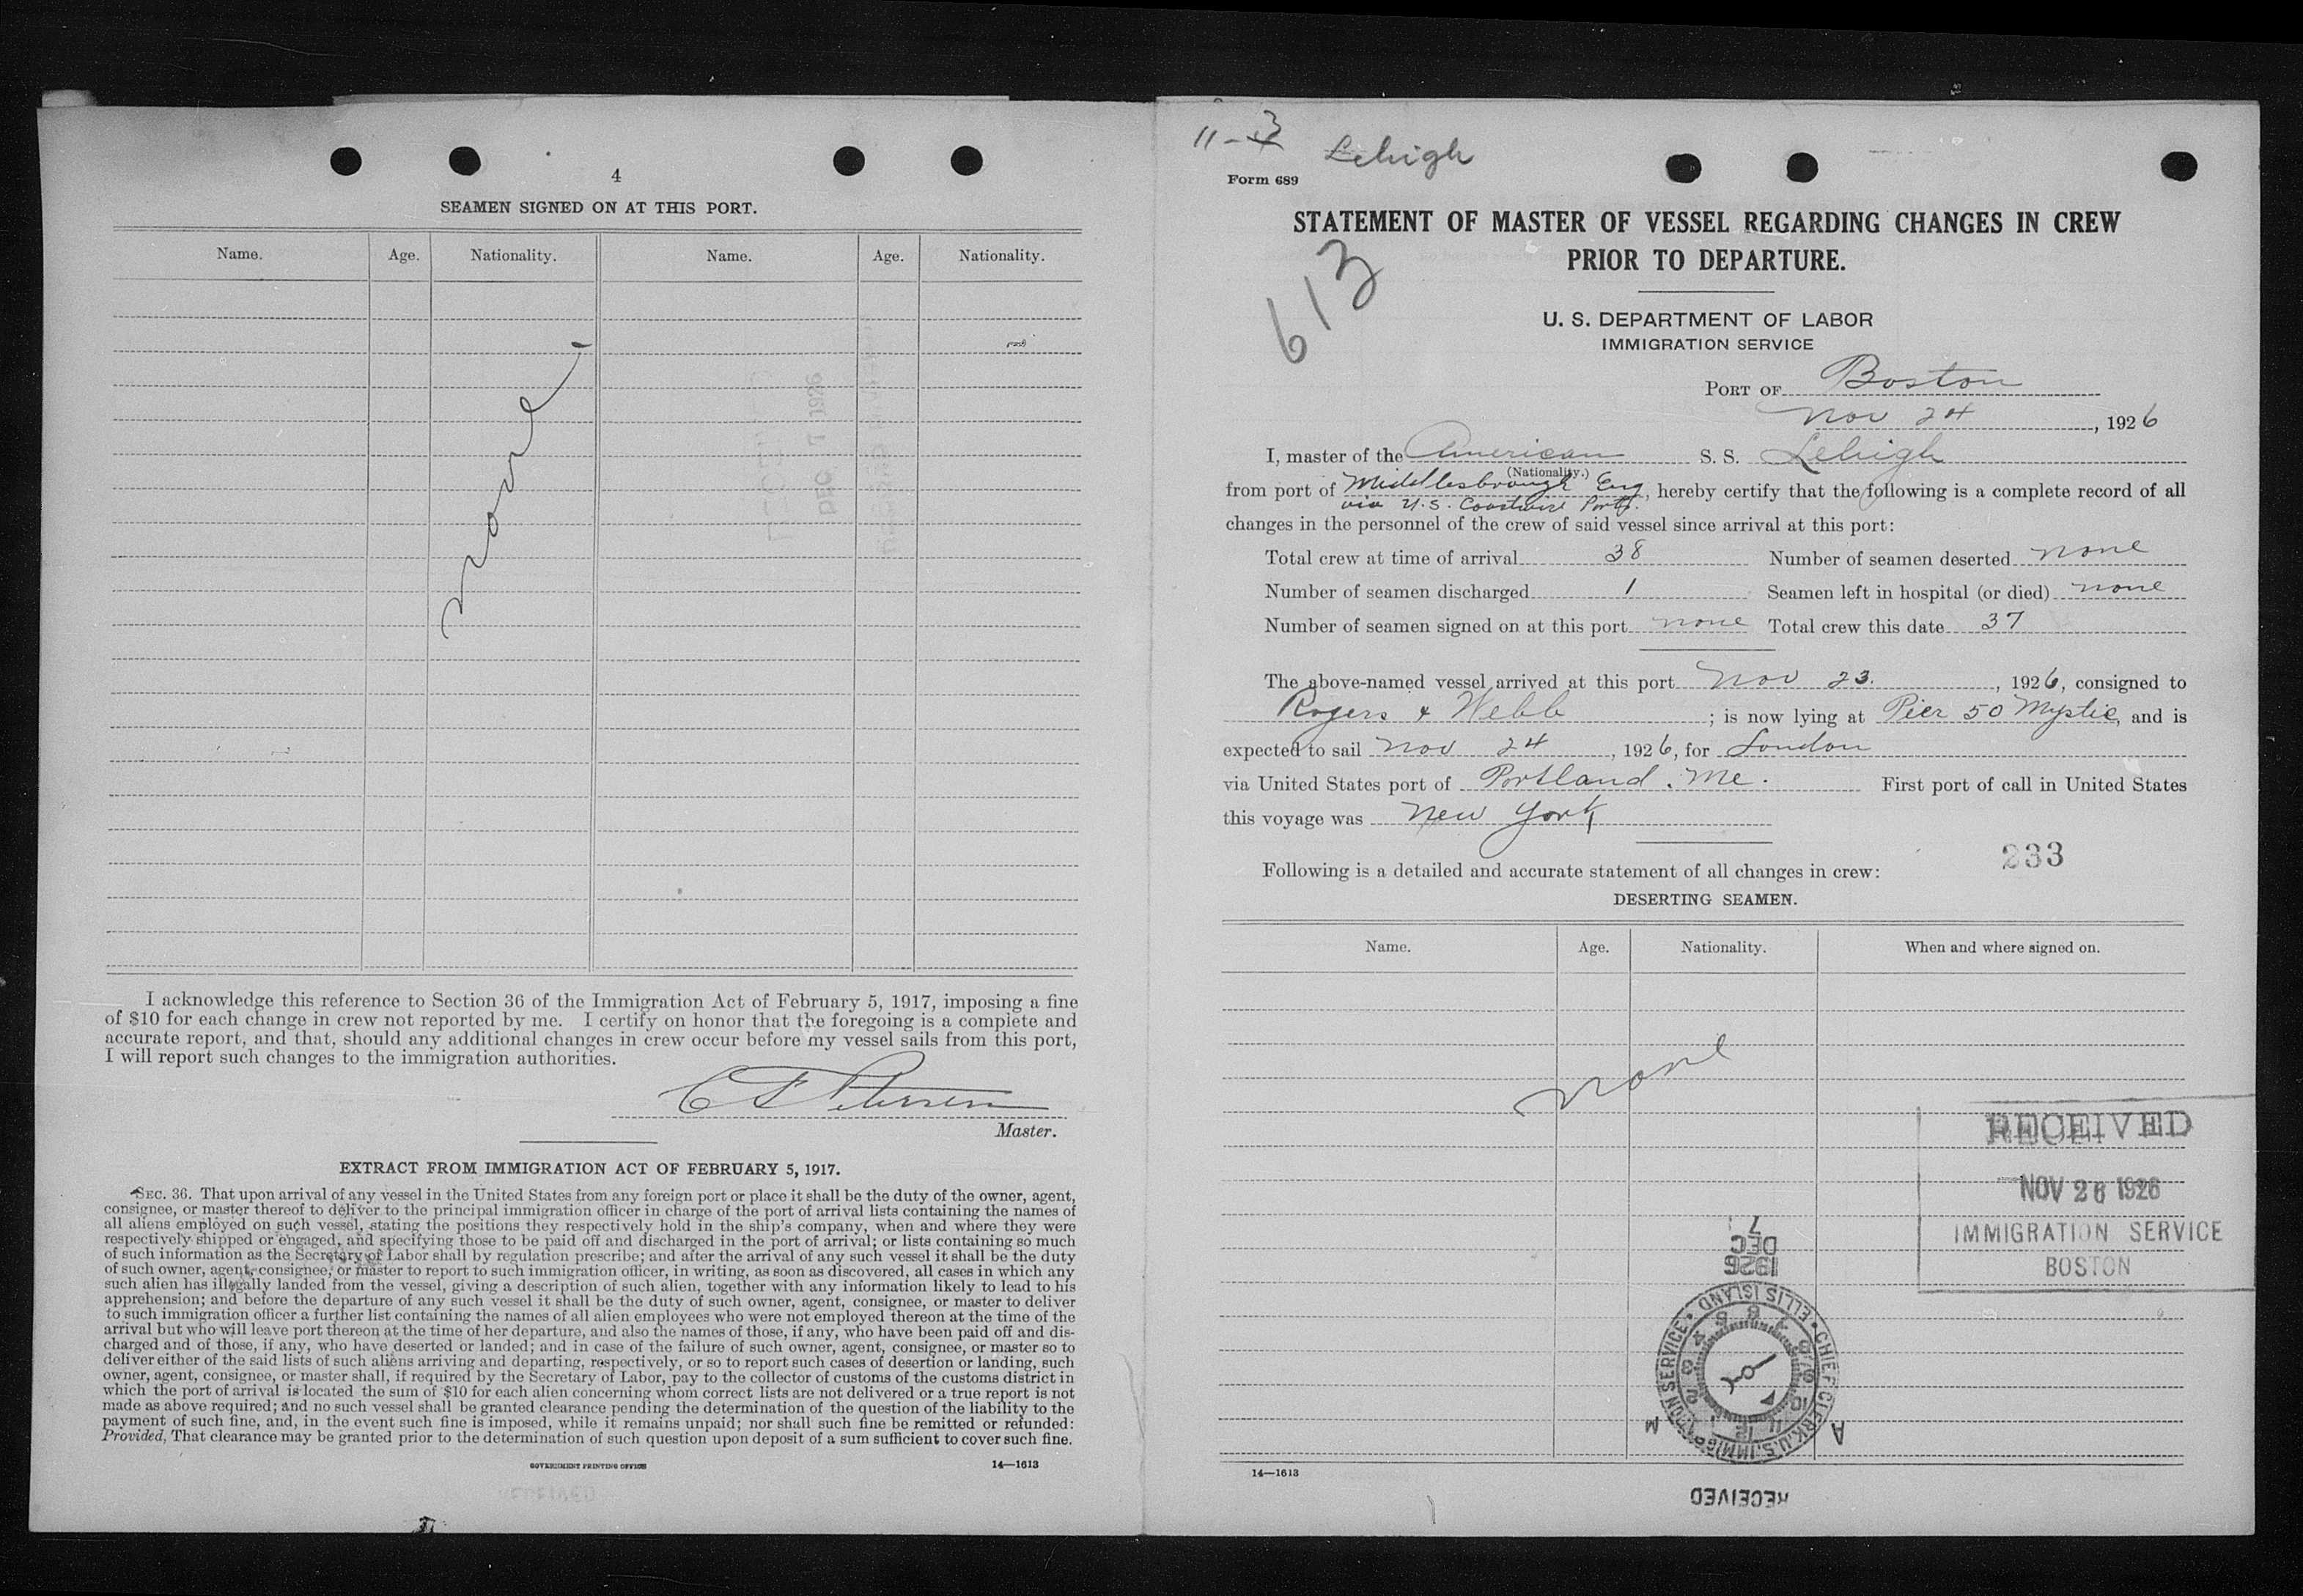 4
SEAMEN SIGNED ON AT THIS PORT.
Name. Age. Nationality. Name. Age. Nationality.
none
I acknowledge this reference to Section 36 of the Immigration Act of February 5, 1917, imposing a fine
of $10 for each change in crew not reported by me. I certify on honor that the foregoing is a complete and
accurate report, and that, should any additional changes in crew occur before my vessel sails from this port,
I will report such changes to the immigration authorities.
C F Petersen
Master.
EXTRACT FROM IMMIGRATION ACT OF FEBRUARY 5, 1917.
SEC. 36. That upon arrival of any vessel in the United States from any foreign port or place it shall be the duty of the owner, agent,
consignee, or master thereof to deliver to the principal immigration officer in charge of the port of arrival lists containing the names of
all aliens employed on such vessel, stating the positions they respectively hold in the ship's company, when and where they were
respectively shipped or engaged, and specifying those to be paid off and discharged in the port of arrival; or lists containing so much
of such information as the Secretary of Labor shall by regulation prescribe; and after the arrival of any such vessel it shall be the duty
of such owner, agent, consignee, or master to report to such immigration officer, in writing, as soon as discovered, all cases in which any
such alien has illegally landed from the vessel, giving a description of such alien, together with any information likely to lead to his
apprehension; and before the departure of any such vessel it shall be the duty of such owner, agent, consignee, or master to deliver
to such immigration officer a further list containing the names of all alien employees who were not employed thereon at the time of the
arrival but who will leave port thereon at the time of her departure, and also the names of those, if any, who have been paid off and dis-
charged and of those, if any, who have deserted or landed; and in case of the failure of such owner, agent, consignee, or master so to
deliver either of the said lists of such aliens arriving and departing, respectively, or so to report such cases of desertion or landing, such
owner, agent, consignee, or master shall, if required by the Secretary of Labor, pay to the collector of customs of the customs district in
which the port of arrival is located the sum of $10 for each alien concerning whom correct lists are not delivered or a true report is not
made as above required; and no such vessel shall be granted clearance pending the determination of the question of the liability to the
payment of such fine, and, in the event such fine is imposed, while it remains unpaid; nor shall such fine be remitted or refunded:
Provided, That clearance may be granted prior to the determination of such question upon deposit of a sum sufficient to cover such fine.
GOVERNMENT PRINTING OFFICE 14—1613
11-3 Lehigh
Form 689
STATEMENT OF MASTER OF VESSEL REGARDING CHANGES IN CREW
PRIOR TO DEPARTURE.
613
U. S. DEPARTMENT OF LABOR
IMMIGRATION SERVICE
PORT OF Boston
Nov 24, 1926
I, master of the American S. S. Lehigh
(Nationality.)
from port of Middlesbrough Eng, hereby certify that the following is a complete record of all
via U.S. Coastwise Ports.
changes in the personnel of the crew of said vessel since arrival at this port:
Total crew at time of arrival 38 Number of seamen deserted none
Number of seamen discharged 1 Seamen left in hospital (or died) none
Number of seamen signed on at this port none Total crew this date 37
The above-named vessel arrived at this port Nov 23., 1926, consigned to
Rogers & Webb; is now lying at Pier 50 Mystic, and is
expected to sail Nov 24, 1926, for London
via United States port of Portland. Me. First port of call in United States
this voyage was New York
233
Following is a detailed and accurate statement of all changes in crew:
DESERTING SEAMEN.
Name. Age. Nationality. When and where signed on.
none
RECEIVED
NOV 26 1926
IMMIGRATION SERVICE
BOSTON
7
DEC
1926
ELLIS ISLAND • CHIEF CLERK, U.S. IMMIGRATION SERVICE •
1 2 3 4 5 6 7 8 9 10 11 12
M A
14—1613
RECEIVED